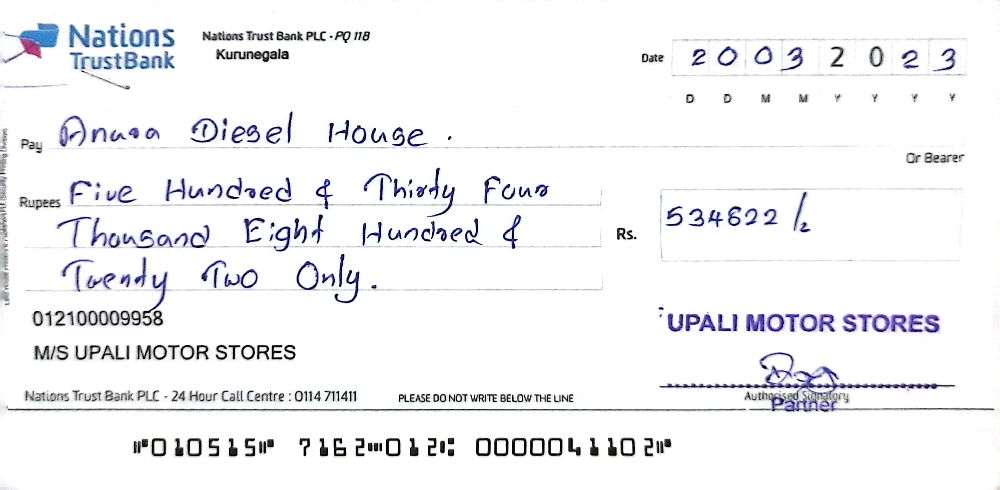 Nations
TrustBank
Nations Trust Bank PLC - PQ 118
Kurunegala
Date 2 0 0 3 2 0 2 3
D D M M Y Y Y Y
Pay Anura Diesel House.
Or Bearer
Rupees Five Hundred & Thirty Four
Thousand Eight Hundred &
Twenty Two Only.
Rs. 534822/2
012100009958
M/S UPALI MOTOR STORES
UPALI MOTOR STORES
Nations Trust Bank PLC - 24 Hour Call Centre : 0114 711411
PLEASE DO NOT WRITE BELOW THE LINE
Authorised Signatory
Partner
⑈010515⑈ 7162⑉012⑆ 0000041102⑈